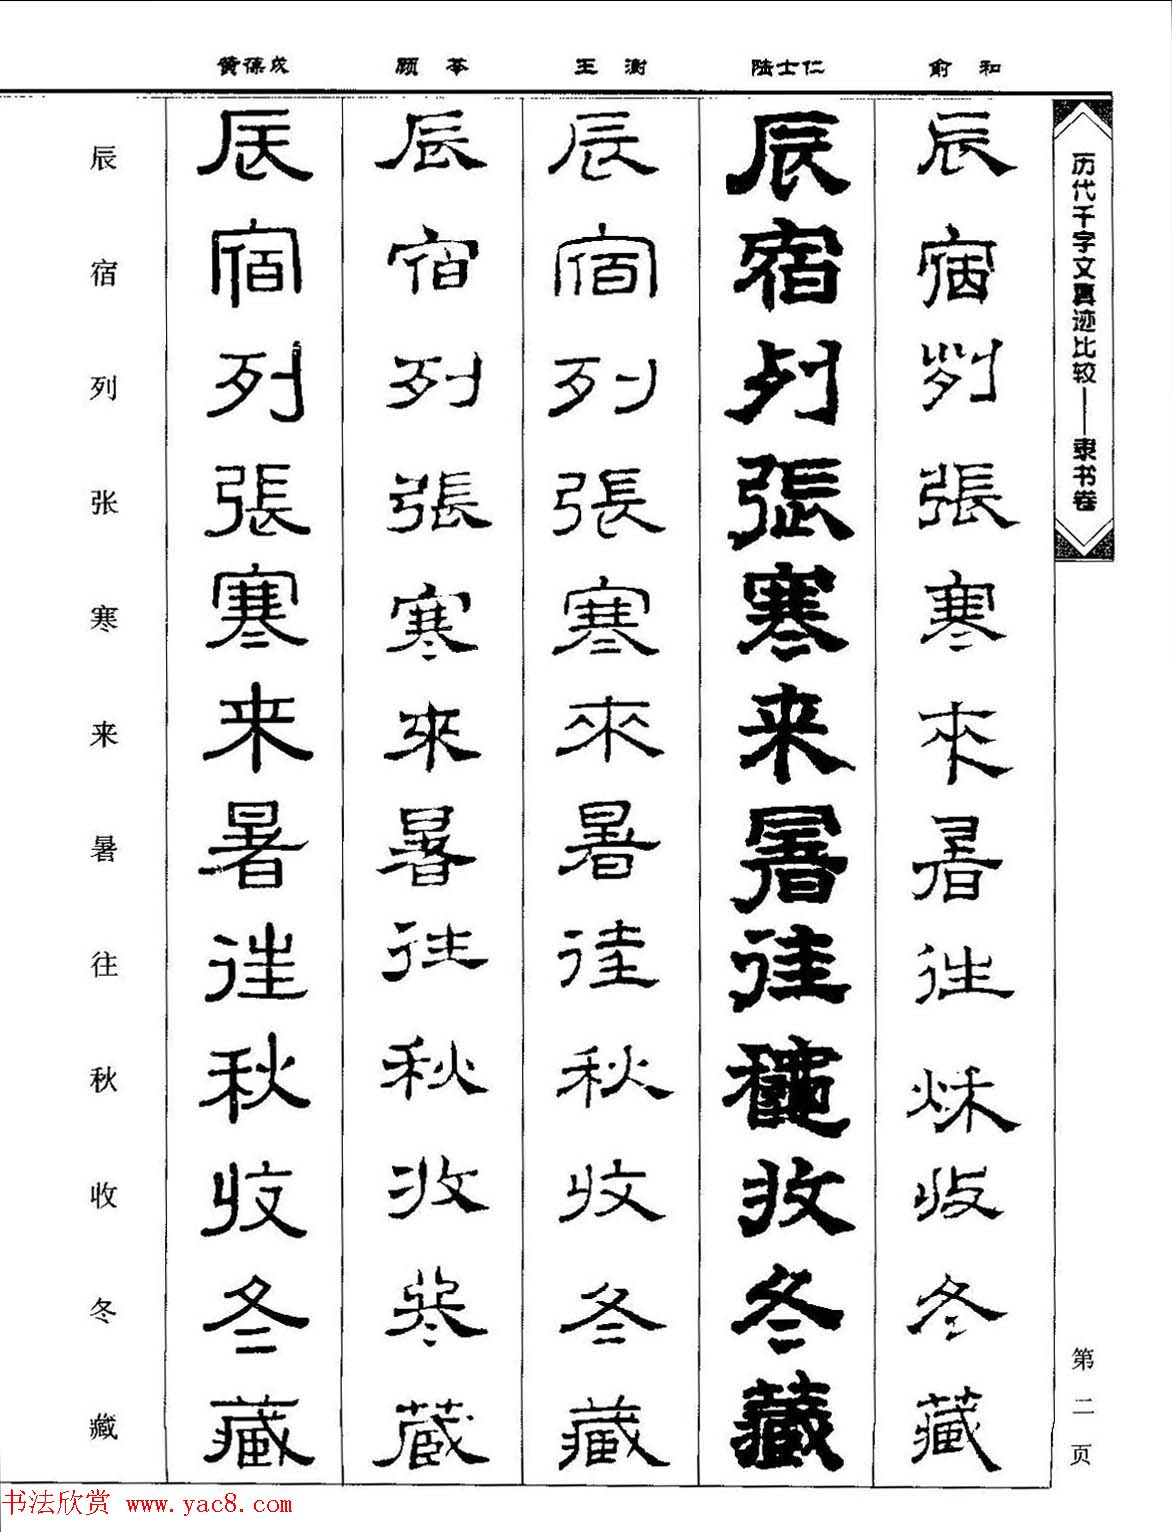 历代千字文真迹比较——隶书卷
第二页
俞和
辰宿列張寒來暑往秋收冬藏
陆士仁
辰宿列張寒来暑往秋收冬藏
王澍
辰宿列張寒來暑往秋收冬藏
顾苓
辰宿列張寒來暑往秋收冬藏
黄葆戉
辰宿列張寒来暑往秋收冬藏
辰宿列张寒来暑往秋收冬藏
书法欣赏 www.yac8.com